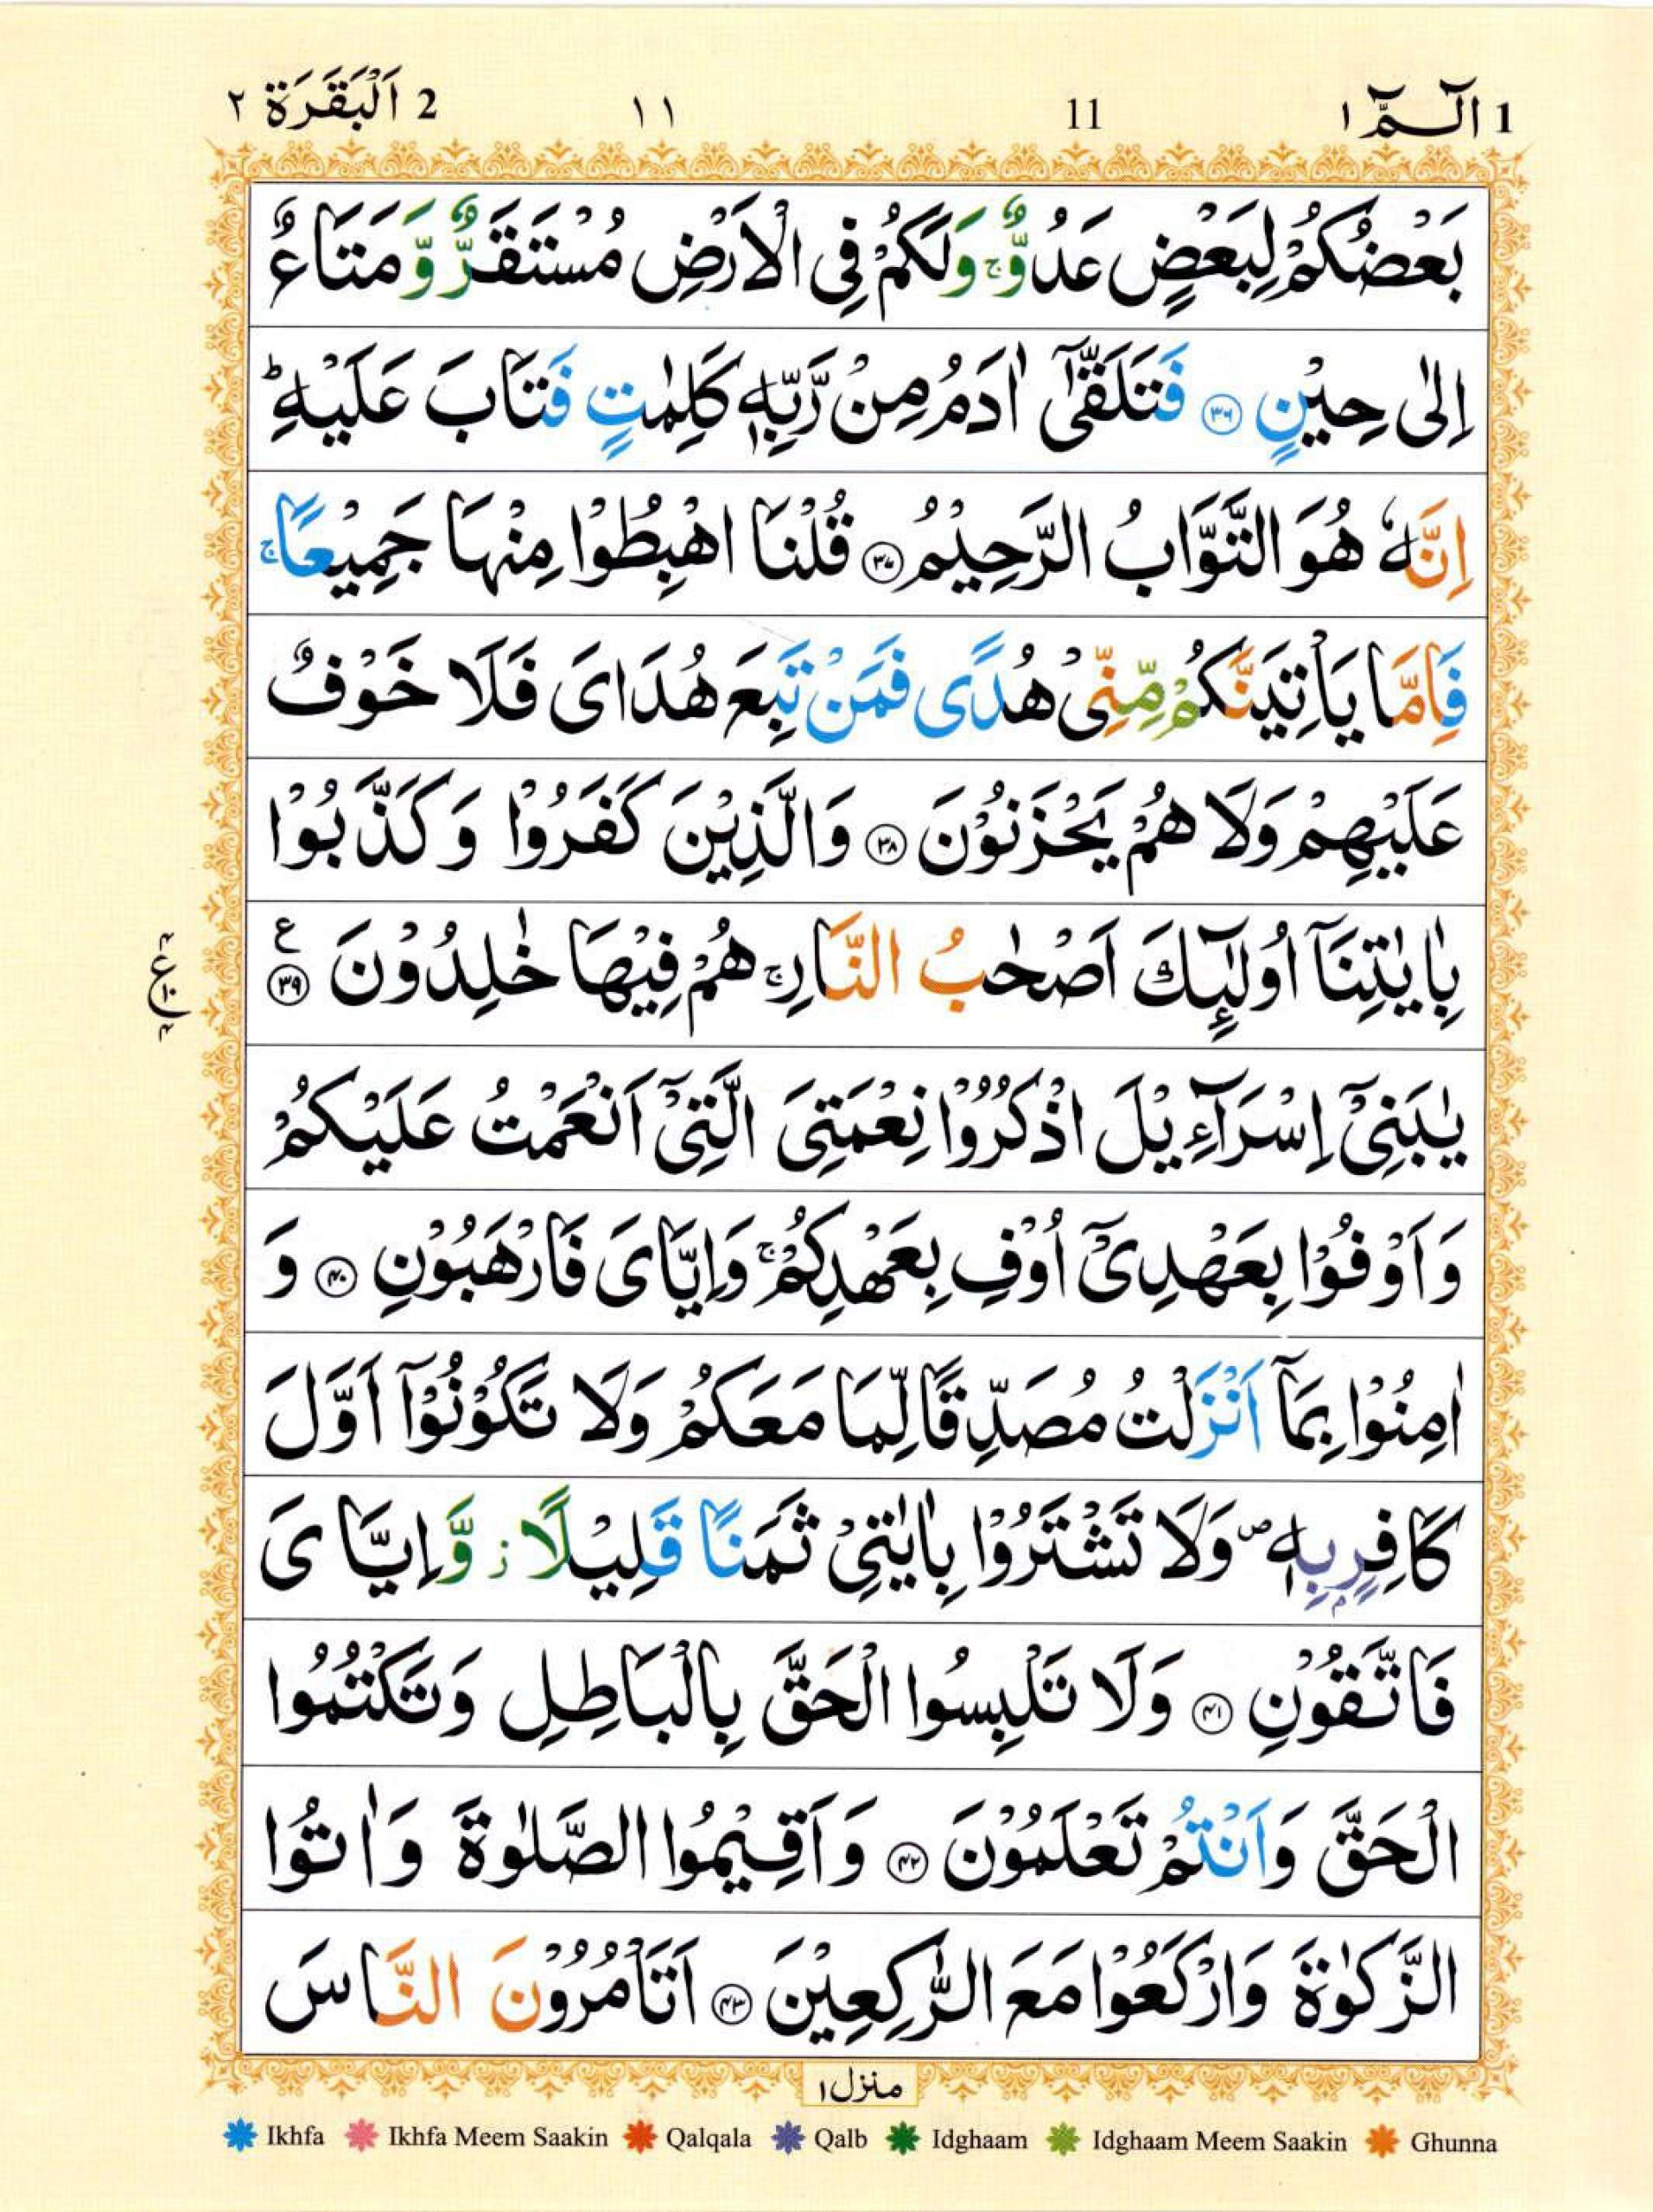 1 الٓـمّٓ ١ 11 ١١ 2 اَلْبَقَرَة ٢
بَعْضُكُمْ لِبَعْضٍ عَدُوٌّ ۚ وَلَكُمْ فِی الْاَرْضِ مُسْتَقَرٌّ وَّ مَتَاعٌ
اِلٰی حِیْنٍ ﴿۳۶﴾ فَتَلَقّٰۤی اٰدَمُ مِنْ رَّبِّهٖ كَلِمٰتٍ فَتَابَ عَلَیْهِ ؕ
اِنَّهٗ هُوَ التَّوَّابُ الرَّحِیْمُ ﴿۳۷﴾ قُلْنَا اهْبِطُوْا مِنْهَا جَمِیْعًا ۚ
فَاِمَّا یَاْتِیَنَّكُمْ مِّنِّیْ هُدًی فَمَنْ تَبِعَ هُدَایَ فَلَا خَوْفٌ
عَلَیْهِمْ وَلَا هُمْ یَحْزَنُوْنَ ﴿۳۸﴾ وَالَّذِیْنَ كَفَرُوْا وَ كَذَّبُوْا
بِاٰیٰتِنَاۤ اُولٰٓىِٕكَ اَصْحٰبُ النَّارِ ۚ هُمْ فِیْهَا خٰلِدُوْنَ ﴿۳۹﴾ ع
۴ ع ١٠ ۴
یٰبَنِیْۤ اِسْرَآءِیْلَ اذْكُرُوْا نِعْمَتِیَ الَّتِیْۤ اَنْعَمْتُ عَلَیْكُمْ
وَ اَوْفُوْا بِعَهْدِیْۤ اُوْفِ بِعَهْدِكُمْ ۚ وَاِیَّایَ فَارْهَبُوْنِ ﴿۴۰﴾ وَ
اٰمِنُوْا بِمَاۤ اَنْزَلْتُ مُصَدِّقًا لِّمَا مَعَكُمْ وَلَا تَكُوْنُوْۤا اَوَّلَ
كَافِرٍۭ بِهٖ ۪ وَلَا تَشْتَرُوْا بِاٰیٰتِیْ ثَمَنًا قَلِیْلًا ؗ وَّ اِیَّایَ
فَاتَّقُوْنِ ﴿۴۱﴾ وَلَا تَلْبِسُوا الْحَقَّ بِالْبَاطِلِ وَ تَكْتُمُوا
الْحَقَّ وَ اَنْتُمْ تَعْلَمُوْنَ ﴿۴۲﴾ وَ اَقِیْمُوا الصَّلٰوةَ وَ اٰتُوا
الزَّكٰوةَ وَ ارْكَعُوْا مَعَ الرّٰكِعِیْنَ ﴿۴۳﴾ اَتَاْمُرُوْنَ النَّاسَ
منزل ١
Ikhfa Ikhfa Meem Saakin Qalqala Qalb Idghaam Idghaam Meem Saakin Ghunna